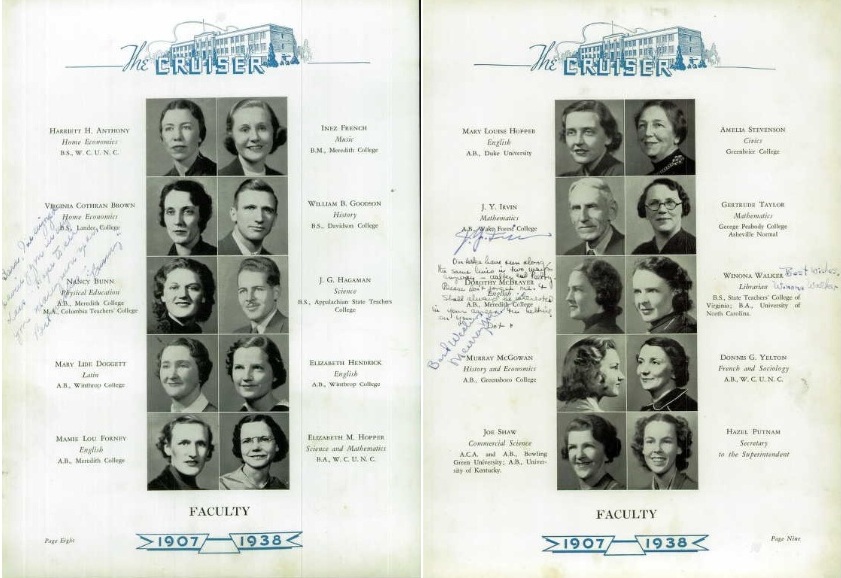 The
CRUISER
HARRIETT H. ANTHONY
Home Economics
B.S., W. C. U. N. C.
VIRGINIA COTHRAN BROWN
Home Economics
B.S., Lander College
NANCY BUNN
Physical Education
A.B., Meredith College
M.A., Columbia Teachers' College
MARY LIDE DOGGETT
Latin
A.B., Winthrop College
MAMIE LOU FORNEY
English
A.B., Meredith College
INEZ FRENCH
Music
B.M., Meredith College
WILLIAM B. GOODSON
History
B.S., Davidson College
J. G. HAGAMAN
Science
B.S., Appalachian State Teachers
College
ELIZABETH HENDRICK
English
A.B., Winthrop College
ELIZABETH M. HOPPER
Science and Mathematics
B.A., W. C. U. N. C.
FACULTY
1907 1938
Page Eight
The
CRUISER
MARY LOUISE HOPPER
English
A.B., Duke University
J. Y. IRVIN
Mathematics
A.B., Wake Forest College
DOROTHY MCBRAYER
English
A.B., Meredith College
MURRAY MCGOWAN
History and Economics
A.B., Greensboro College
JOE SHAW
Commercial Science
A.C.A. and A.B., Bowling
Green University; A.B., Univer-
sity of Kentucky.
AMELIA STEVENSON
Civics
Greenbrier College
GERTRUDE TAYLOR
Mathematics
George Peabody College
Asheville Normal
WINONA WALKER Best Wishes
Librarian Winona Walker
B.S., State Teachers' College of
Virginia; B.A., University of
North Carolina.
DONNIS G. YELTON
French and Sociology
A.B., W. C. U. N. C.
HAZEL PUTNAM
Secretary
to the Superintendent
FACULTY
1907 1938
Page Nine